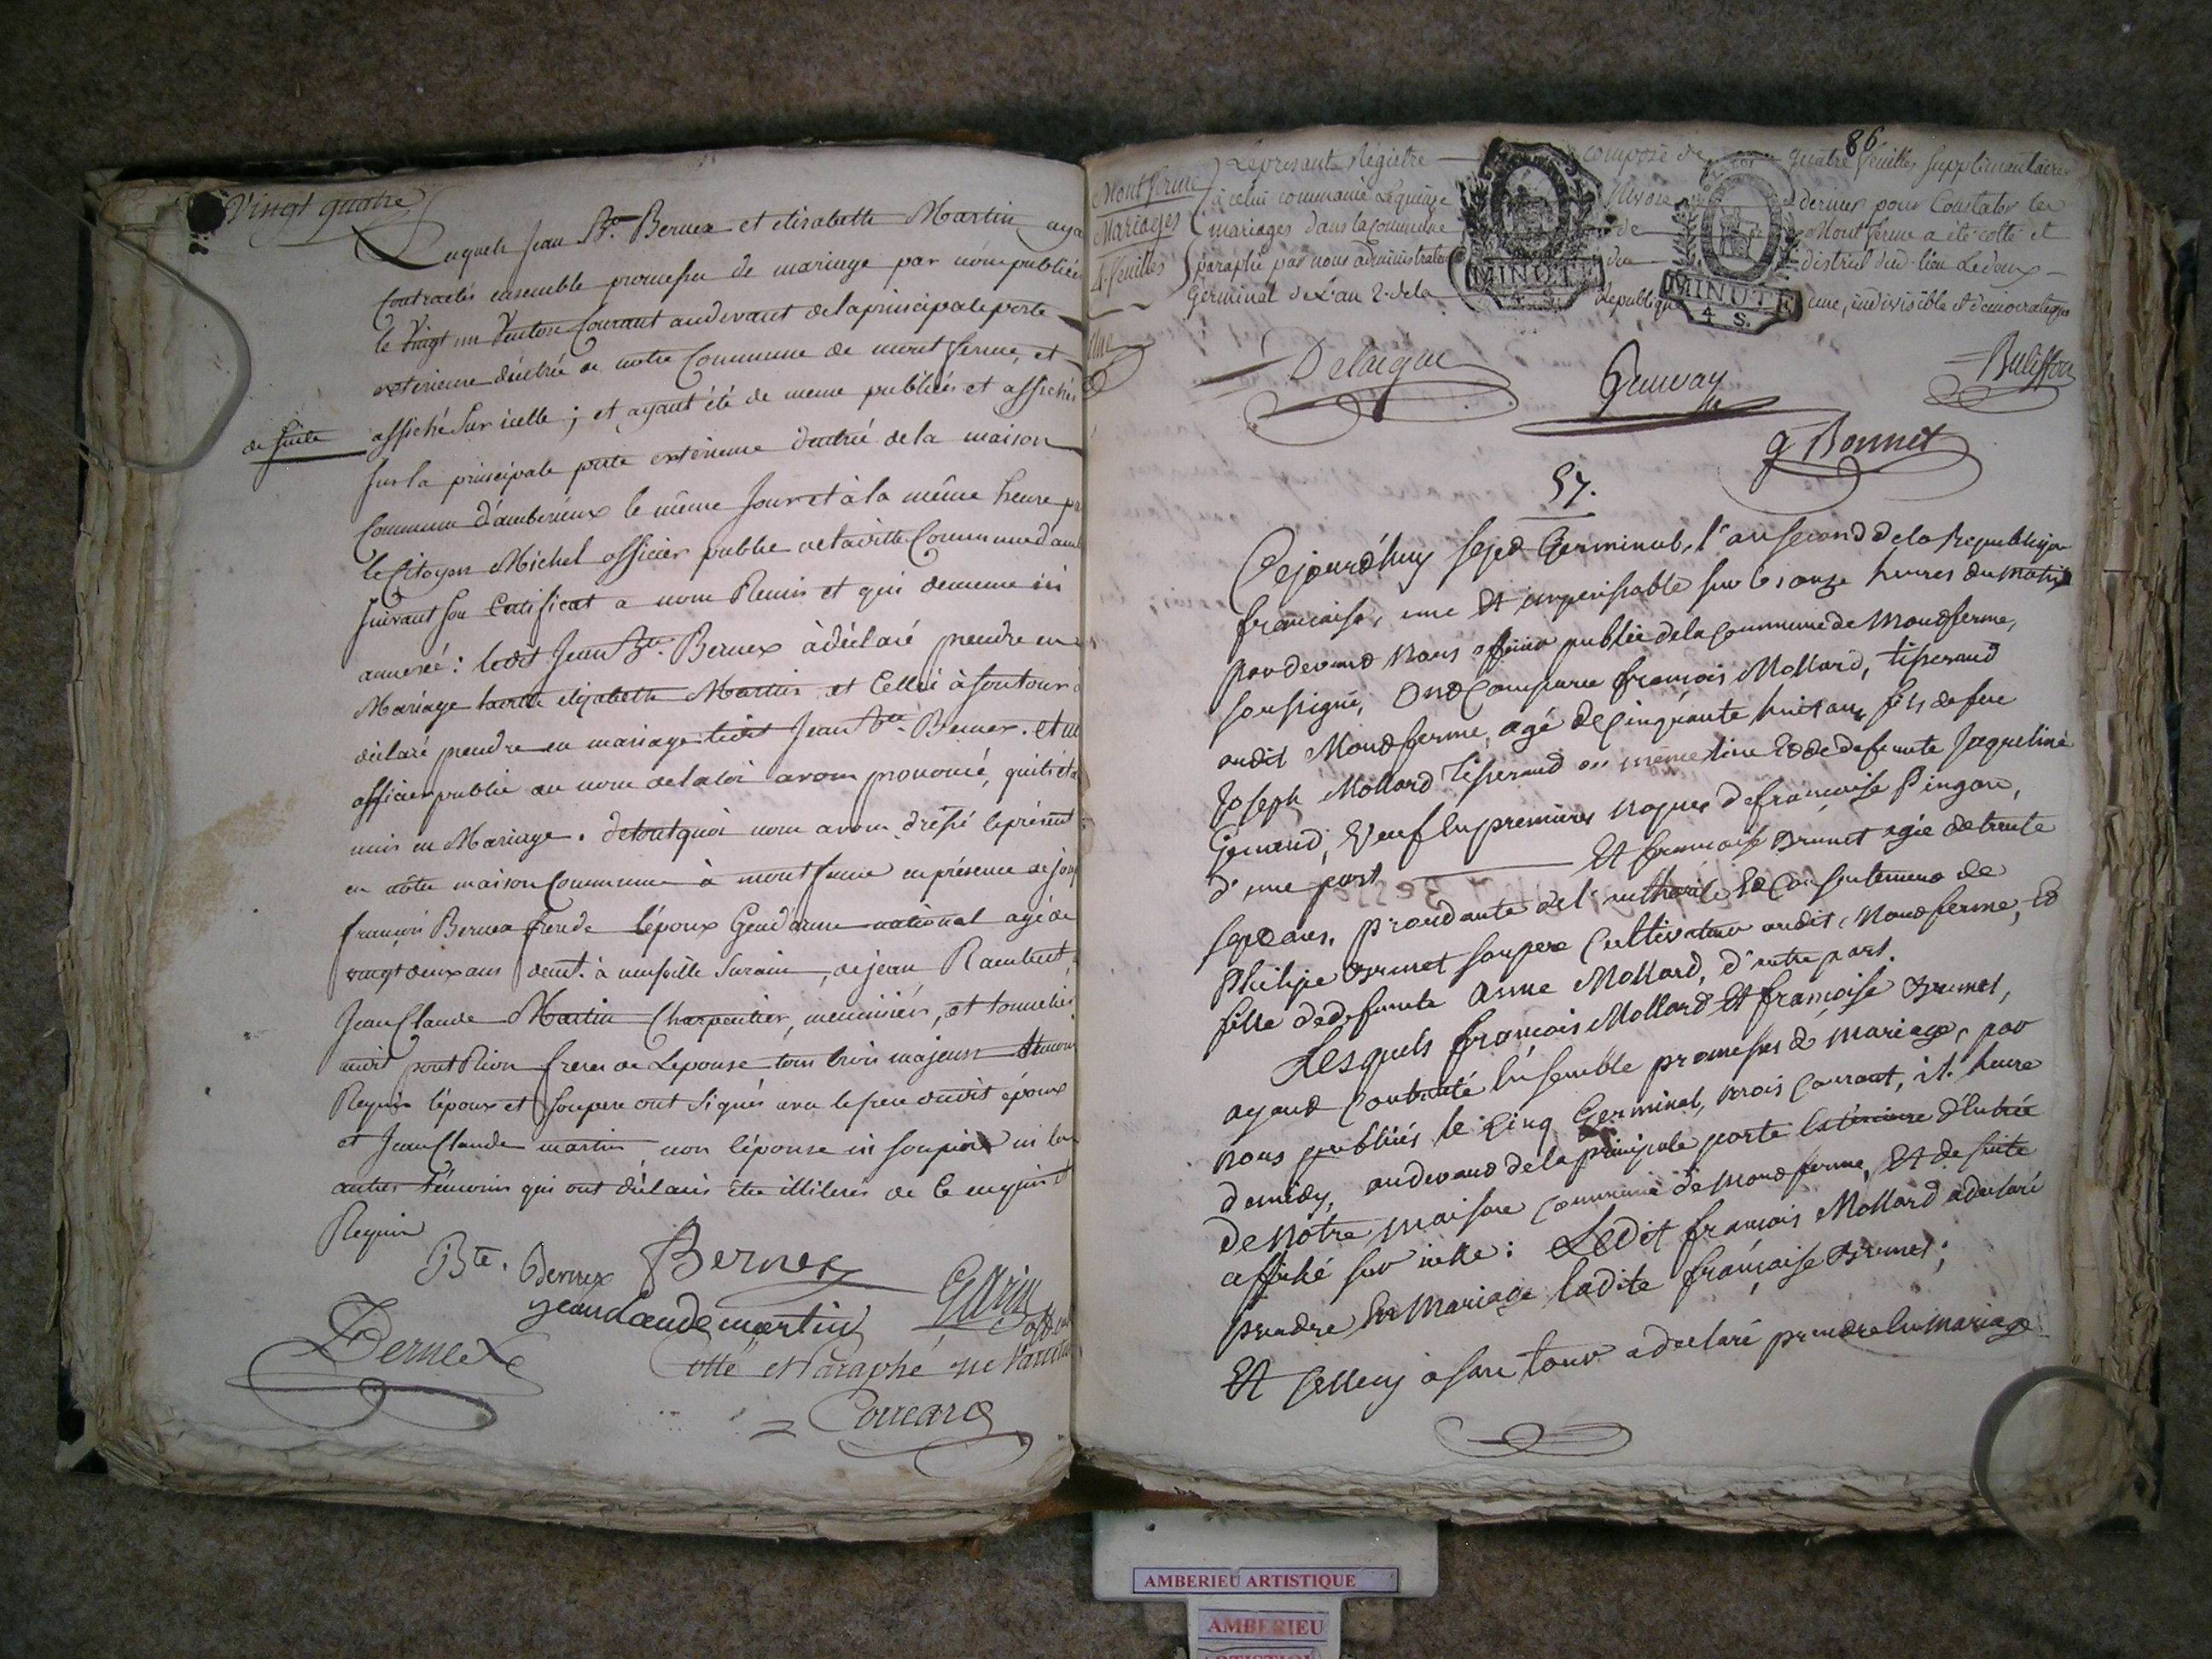 Vingt quatre
Lesquels Jean Bte. Bernex et elisabeth Martin aya
Contractés ensemble promesse de mariage par nous publiées
le vingt un Ventose Courant audevant de la principale porte
exterieure d'entrée de notre Commune de mont ferme, et
de suite affiché Sur icelle ; et ayant été de meme publiées et affichés
sur la principale porte exterieure dentrée de la maison
Commune d'amberieux le même Jour et à la même heure
le Citoyen Michel officier public de Commune
suivant son Certificat a nous Remis et qui demeure ici
annexé : ledit Jean Bte. Bernex à déclaré prendre en
Mariage laditte elizabeth Martin et Celle à son tour
déclaré prendre en mariage ledit Jean Bte. Bernex. et
officier public au nom de la loi avons prononcé, quils
unis en Mariage. de tout quoi nous avons dressé le présent
en nôtre maison Commune à mont ferme en présence de
françois Bernex frere de l'époux Gendarme national agé de
vingt deux ans demt. à , de jean Rambert,
Jean Claude Martin Charpentier, menuisier, et tonnelier
frères de Lepouse tous trois majeurs temoins
Requis l'époux et son pere ont signés avec le frere dudit époux
et Jean Claude martin non l'épouse ni son pere ni les
autres témoins qui ont déclarés être illiterés de ce enquis et
Requis
Bte. Bernex Bernex
jean claude martin
Bernex
Cotté et Paraphé ne
86
Mont ferme
Mariages
4. feuilles
Le present Régistre composé de quatre feuilles supplémentaires
à celui commencé le quinze Nivose dernier pour Constater les
mariages dans la commune de Mont ferme a été cotté et
paraphé par nous administrateurs du district dud. lieu Le deux
Germinal de L'an 2. de la République une, indivisible et démocratique
MINUTE
4 S.
MINUTE
4 S.
Une
Delaigue
g Bonnet
57.
Cejourd'huy sept Germinal, l'an second de la Republique
française, une et imperissable sur les onze heures du matin
par devant Nous officier public de la Commune de Montferme,
soussigné, ont Comparu françois Mollard, tisserand
audit Montferme, agé de Cinquante huit ans fils de feu
Joseph Mollard tisserand au même lieu et de defunte Jaqueline
, Veuf en premières noques de françoise Pingon,
d'une part Et françoise Brunet agée de trente
sept ans, procedante de l'authorité et Consentement de
Philipe Brunet son pere Cultivateur audit Montferme, et
fille de defunte Anne Mollard, d'autre part.
Lesquels françois Mollard Et françoise Brunet,
ayant Contracté Ensemble promesses de Mariage, par
Nous publiées le Cinq Germinal, mois Courant, à l'heure
de midy, audevant de la principale porte Extérieure d'Entrée
de Notre Maison Commune de Montferme, Et de suite
affiché sur icelle : Ledit françois Mollard a declaré
prendre En Mariage ladite françoise Brunet ;
Et cellecy a son tour a declaré prendre En mariage
AMBERIEU ARTISTIQUE
AMBERIEU
ARTISTIQUE